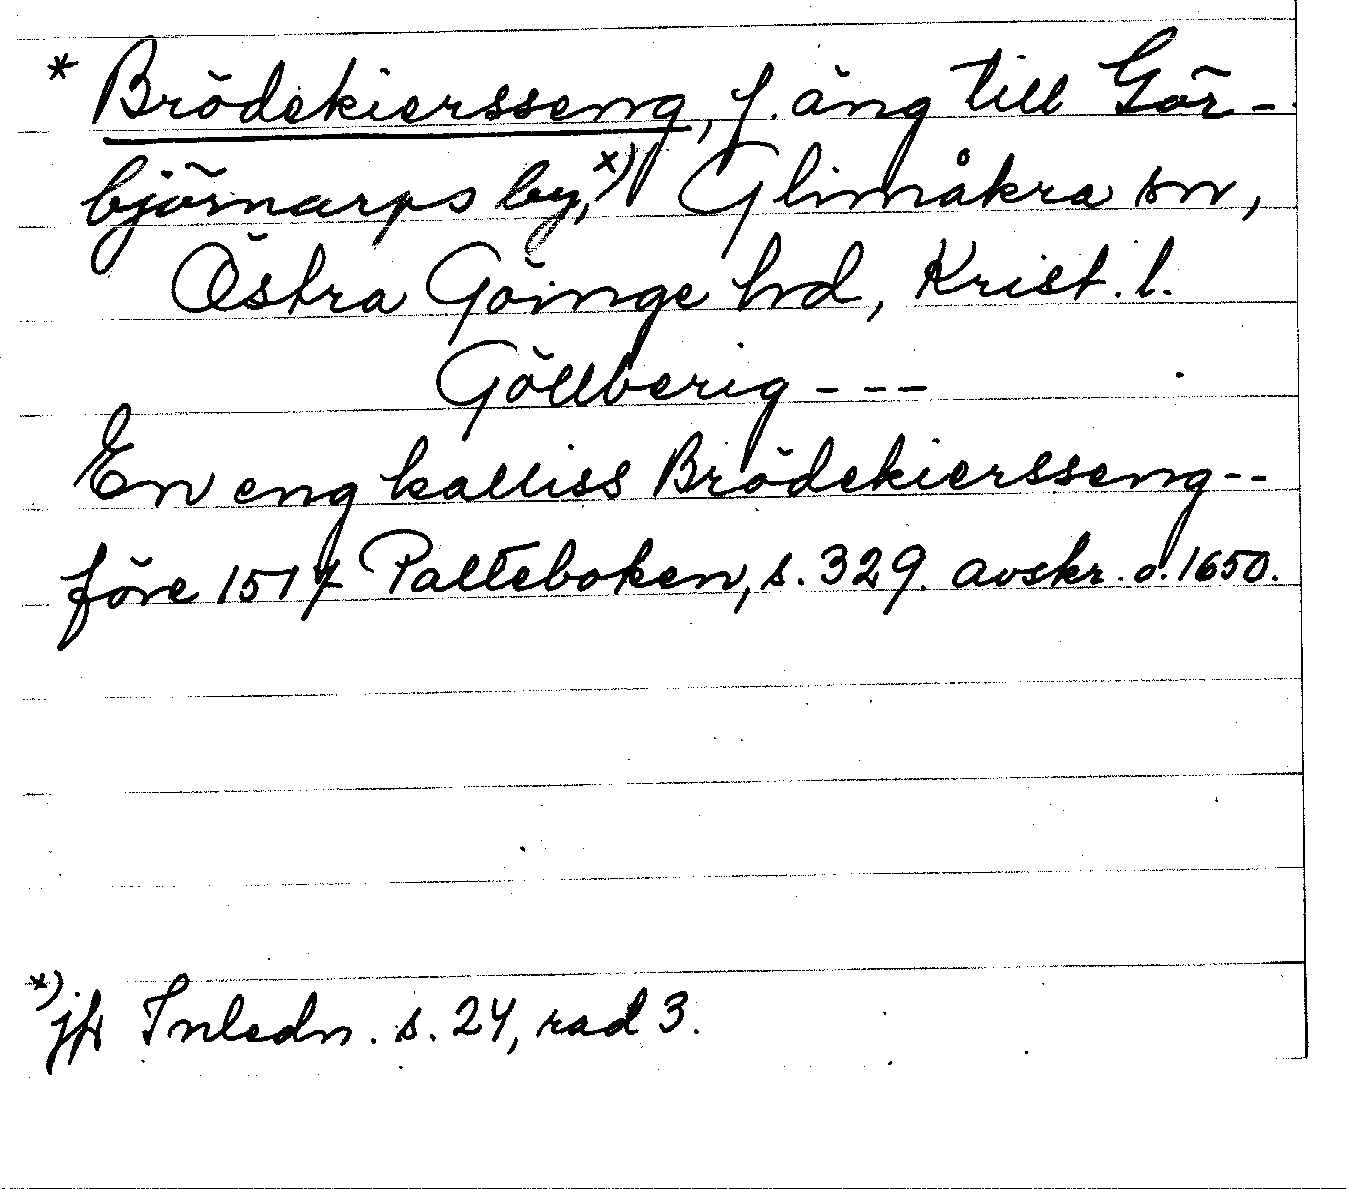 * Brödekiersseng, f. äng till Gör-
björnarps by,x) Glimåkra sn,
Östra Göinge hd, Krist. l.
Göllberig - - -
En eng kalliss Brödekiersseng--
före 1514 Palteboken, s. 329. avskr. o. 1650.
x) jfr Inledn. s. 24, rad 3.